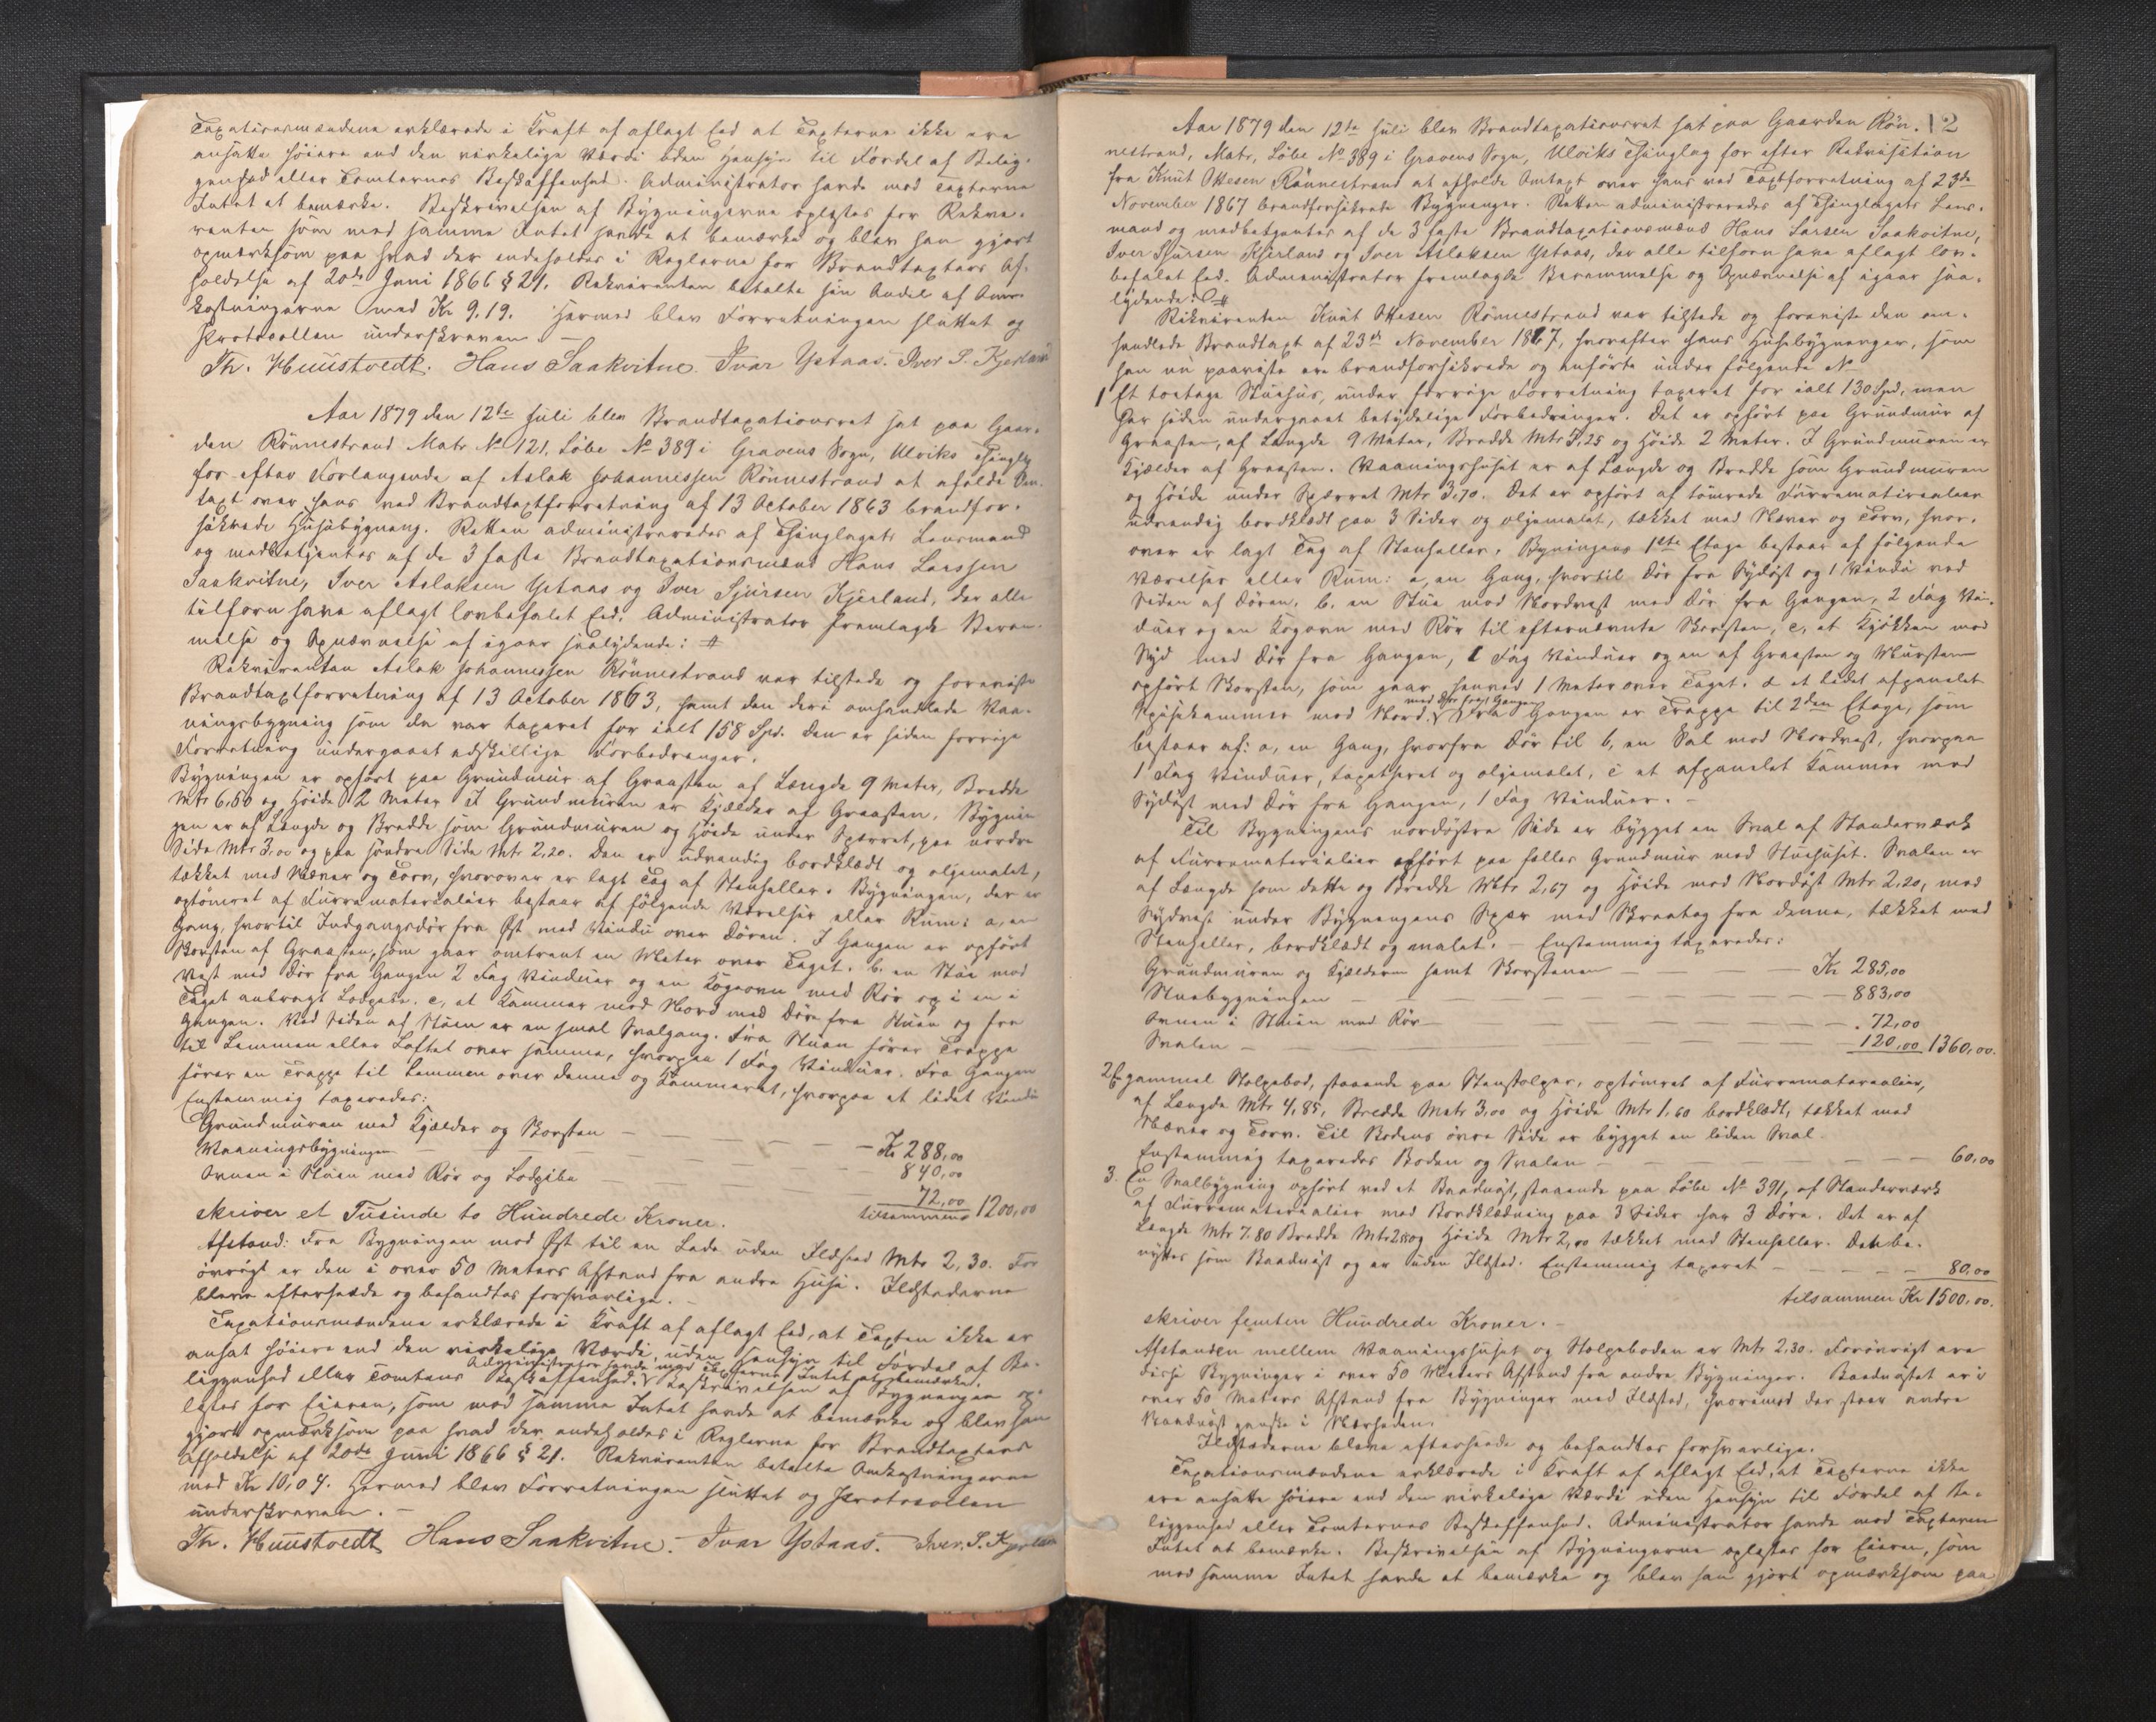 Taxationsmændene erklærede i Kraft af aflagt Eed at Taxterne ikke ere
ansatte høiere end den virkelige Værdi uden Hensyn til Fordel af Belig-
genhed eller Tomternes Beskaffenhed. Administrator havde mod Taxterne
Intet at bemærke. Beskrivelsen af Bygningerne oplæstes for Rekvi-
renten som mod samme Intet havde at bemærke og blev han gjort
opmærksom paa hvad der indeholdes i Reglerne for Brandtaxters Af-
holdelse af 20de Juni 1866 § 21. Rekvirenten betalte sin Andel af Om-
kostningerne med Kr 9.19. Hermed blev Forretningen sluttet og
Protocollen underskreven –
Th. Huustvedt. Hans Saakvitne. Ivar Ystaas. Iver S. Kjerland
Aar 1879 den 12te Juli blev Brandtaxationsret sat paa Gaar-
den Rönnestrand Matr. No 121, Löbe No 389 i Gravens Sogn, Ulviks Thinglag
for efter Forlangende af Aslak Johannessen Rönnestrand at afholde Om-
taxt over hans ved Brandtaxtforretning af 13 October 1863 brandfor-
sikrede Husebygning. Retten administreredes af Thinglagets Lensmand
og medbetjentes af de 3 faste Brandtaxationsmænd Hans Larssen
Saakvitne, Iver Aslaksen Ystaas og Iver Sjursen Kjerland, der alle
tilforn have aflagt lovbefalet Eed. Administrator fremlagde Beram-
melse og Opnævnelse af igaar saalydende: #
Rekvirenten Aslak Johannessen Rönnestrand var tilstede og foreviste
Brandtaxtforretning af 13 October 1863, samt den deri omhandlede Vaa-
ningsbygning som da var taxeret for ialt 158 Spd. Den er siden forrige
Forretning undergaaet adskillige Forbedringer.
Bygningen er opført paa Grundmur af Graasten af Længde 9 Meter, Bredde
Mtr 6,50 og Høide 2 Meter. I Grundmuren er Kjælder af Graasten. Bygnin-
gen er af Længde og Bredde som Grundmuren og Høide under Sperret, paa nordre
Side Mtr 3,00 og paa søndre Side Mtr. 2,20. Den er udvendig bordklædt og oljemalet,
tækket med Næver og Torv, hvorover er lagt Tag af Stenheller. Bygningen, der er
optømret af Furrematerialier bestaar af følgende Værelser eller Rum: a, en
Gang, hvortil Indgangsdør fra Øst med Vindu over Døren. I Gangen er opført
Skorsten af Graasten, som gaar omtrent en Meter over Taget. b. en Stue mod
Vest med Dør fra Gangen 2 Fag Vinduer og en Kogeovn med Rør og i en i
Taget anbragt Lodpibe. c, et Kammer mod Nord med Døre fra Stuen og fra
Gangen. Ved Siden af Stuen er en smal Svalgang. Fra Stuen fører Trappe
til Lemmen eller Loftet over samme, hvorpaa 1 Fag Vinduer. Fra Gangen
fører en Trappe til Lemmen over denne og Kammeret, hvorpaa et lidet Vindu
Enstemmig taxeredes:
Grundmuren med Kjælder og Skorsten – – – Kr 288,00
Vaaningsbygningen – – – 840,00
Ovnen i Stuen med Rør og Lodpibe – – – 72,00
tilsammen 1200,00
skriver et Tusinde to Hundrede Kroner.
Afstand: Fra Bygningen mod Øst til en Lade uden Ildsted Mtr 2,30. For
øvrigt er den i over 50 Meters Afstand fra andre Huse. Ildstederne
bleve efterseede og befandtes forsvarlige. –
Taxationsmændene erklærede i Kraft af aflagt Eed, at Taxten ikke er
ansat høiere end den virkelige Værdi, uden Hensyn til Fordel af Be-
Administrator havde mod Taxterne Intet at bemærke.
liggenhed eller Tomtens Beskaffenhed. Beskrivelsen af Bygningen op-
læstes for Eieren, som mod samme Intet havde at bemærke og blev han
gjort opmærksom paa hvad der indeholdes i Reglerne for Brandtaxters
Afholdelse af 20de Juni 1866 § 21. Rekvirenten betalte Omkostningerne
med Kr 10,04. Hermed blev Forretningen sluttet og Protocollen
underskreven. –
Th. Huustvedt Hans Saakvitne. – Ivar Ystaas. – Iver. S. Kjerland
12
Aar 1879 den 12te Juli blev Brandtaxationsret sat paa Gaarden Rön-
nestrand, Matr. Löbe No 389 i Gravens Sogn, Ulviks Thinglag for efter Rekvisition
fra Knut Ottesen Rönnestrand at afholde Omtaxt over hans ved Taxtforretning af 23de
November 1867 brandforsikrede Bygninger. Retten administreredes af Thinglagets Lens-
mand og medbetjentes af de 3 faste Brandtaxationsmænd Hans Larsen Saakvitne,
Iver Sjursen Kjerland og Iver Aslaksen Ystaas, der alle tilforn have aflagt lov-
befalet Eed. Administrator fremlagde Berammelse og Opnævnelse af igaar saa-
lydende: #
Rekvirenten Knut Ottesen Rönnestrand var tilstede og foreviste den om-
handlede Brandtaxt af 23de November 1867, hvorefter hans Husebygninger, som
han nu paaviste ere brandforsikrede og anførte under følgende No
1 Et toetages Stuehus, under forrige Forretning taxeret for ialt 130 Spd, men
har siden undergaaet betydelige Forbedringer. Det er opført paa Grundmur af
Graasten, af Længde 9 Meter, Bredde Mtr 5,25 og Høide 2 Meter. I Grundmuren er
Kjælder af Graasten. Vaaningshuset er af Længde og Bredde som Grundmuren
og Høide under Sperret Mtr 3,70. Det er opført af tømrede Furrematerialier
udvendig bordklædt paa 3 Sider og oljemalet, tækket med Næver og Torv, hvor-
over er lagt Tag af Stenheller. Bygningens 1ste Etage bestaar af følgende
Værelser eller Rum: a, en Gang, hvortil Dør fra Sydøst og 1 Vindu ved
Siden af Døren. b. en Stue mod Nordvest med Dør fra Gangen, 2 Fag Vin-
duer og en Kogeovn med Rør til efternævnte Skorsten, c, et Kjøkken mod
Syd med Dør fra Gangen, 1 Fag Vinduer og en af Graasten og Mursten
opført Skorsten, som gaar henved 1 Meter over Taget. d et lidet afpanelet
med Dør fra Gangen
Spisekammer mod Nord. Fra Gangen er Trappe til 2den Etage, som
bestaar af: a, en Gang, hvorfra Dør til b, en Sal mod Nordvest, hvorpaa
1 Fag Vinduer, tapetseret og oljemalet, c et afpanelet Kammer mod
Sydøst med Dør fra Gangen, 1 Fag Vinduer. –
Til Bygningens nordøstre Side er bygget en Sval af Standerværk
af Furrematerialier opført paa fælles Grundmur med Stuehuset. Svalen er
af Længde som dette og Bredde Mtr 2,67 og Høide mod Nordøst Mtr. 2,20, mod
Sydvest under Bygningens Sper med Skraatag fra denne, tækket med
Stenheller, bordklædt og malet. – Enstemmig taxeredes:
Grundmuren og Kjælderen samt Skorstenen – – Kr 285,00
Stuebygningen – – – 883,00
Ovnen i Stuen med Rør – – – 72,00
Svalen – – – 120,00 1360,00.
2 En gammel Stolpebod, staaende paa Stenstolper, optømret af Furrematerialier,
af Længde Mtr 4,85, Bredde Mtr 3,00 og Høide Mtr 1,60 bordklædt, tækket med
Næver og Torv. Til Bodens øvre Side er bygget en liden Sval.
Enstemmig taxeredes Boden og Svalen – – – 60,00
3. En Svalbygning opført ved et Baadnøst, staaende paa Löbe No 391, af Standerværk
af Furrematerialier med Bordklædning paa 3 Sider har 3 Døre. Det er af
Længde Mtr 7.80 Bredde Mtr 2 og Høide Mtr 2,00 tækket med Stenheller. Det be-
nyttes som Baadnøst og er uden Ildsted. Enstemmig taxeret – – – 80,00
tilsammen Kr 1500,00.
skriver femten Hundrede Kroner. –
Afstanden mellem Vaaningshuset og Stolpeboden er Mtr. 2.30. Forøvrigt ere
disse Bygninger i over 50 Meters Afstand fra andre Bygninger. Baadnøstet er i
over 50 Meters Afstand fra Bygninger med Ildsted, hvorimod der staar andre
Baadnøst ganske i Nærheden.
Ildstederne bleve efterseede og befandtes forsvarlige.
Taxationsmændene erklærede i Kraft af aflagt Eed, at Taxterne ikke
ere ansatte høiere end den virkelige Værdi uden Hensyn til Fordel af Be-
liggenhed eller Tomternes Beskaffenhed. Administrator havde mod Taxterne
Intet at bemærke. Beskrivelsen af Bygningerne oplæstes for Eieren, som
mod samme Intet havde at bemærke og blev han gjort opmærksom paa